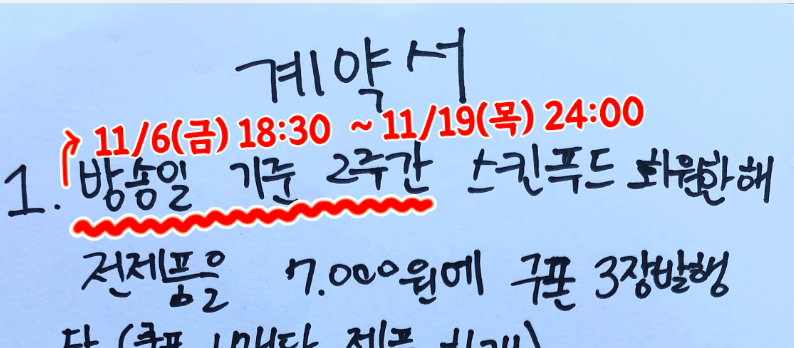 계약서
11/6(금) 18:30 ~ 11/19(목) 24:00
1. 방송일 기준 2주간 스킨푸드 회원한해
전제품을 7.000원에 쿠폰 3장발행